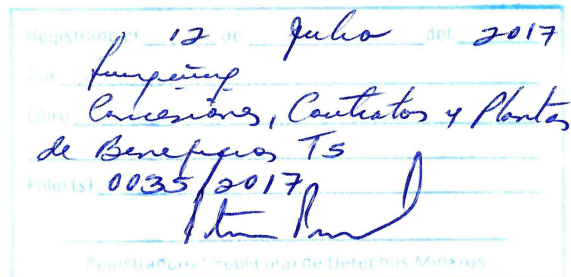 Registrado el 12 de Julio del 2017
Por
Libro Concesiones, Contratos y Plantas
de Beneficios T5
Folio (s) 0035/2017
Registrador Seccional de Derechos Mineros